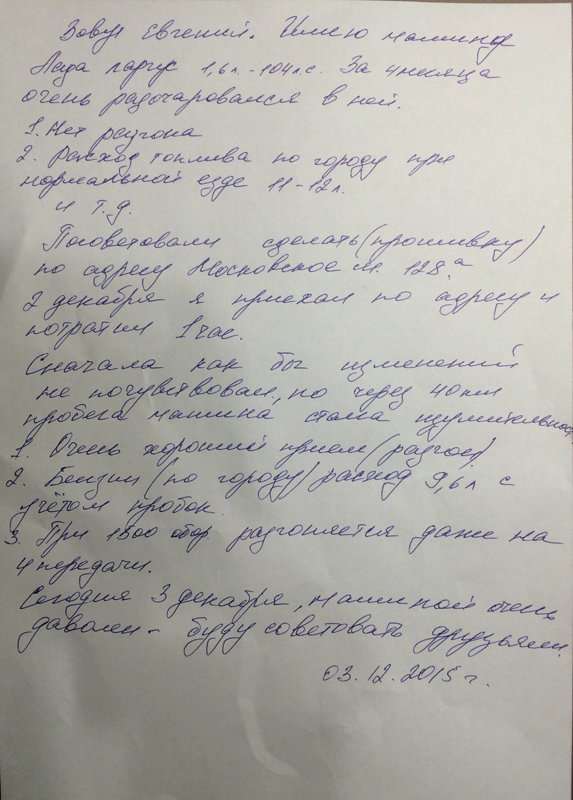 Зовут Евгений. Имею машину
Лада ларгус 1,6л.-104л.с. За 4месяца
очень разочаровался в ней.
1. Нет разгона
2. Расход топлива по городу при
нормальной езде 11-12л.
и т.д.
Посоветовали сделать(прошивку)
по адресу Московское ш. 128а
2 декабря я приехал по адресу и
потратил 1час.
Сначала как бы изменений
не почувствовал, но через 40км
пробега машина стала
1. Очень хороший прием(разгон)
2. Бензин (по городу) расход 9,6л с
учётом пробок.
3. При 1500 обор. разгоняется даже на
4 передачи.
Сегодня 3 декабря, машиной очень
даволен - буду советовать друзьям.
03.12.2015г.